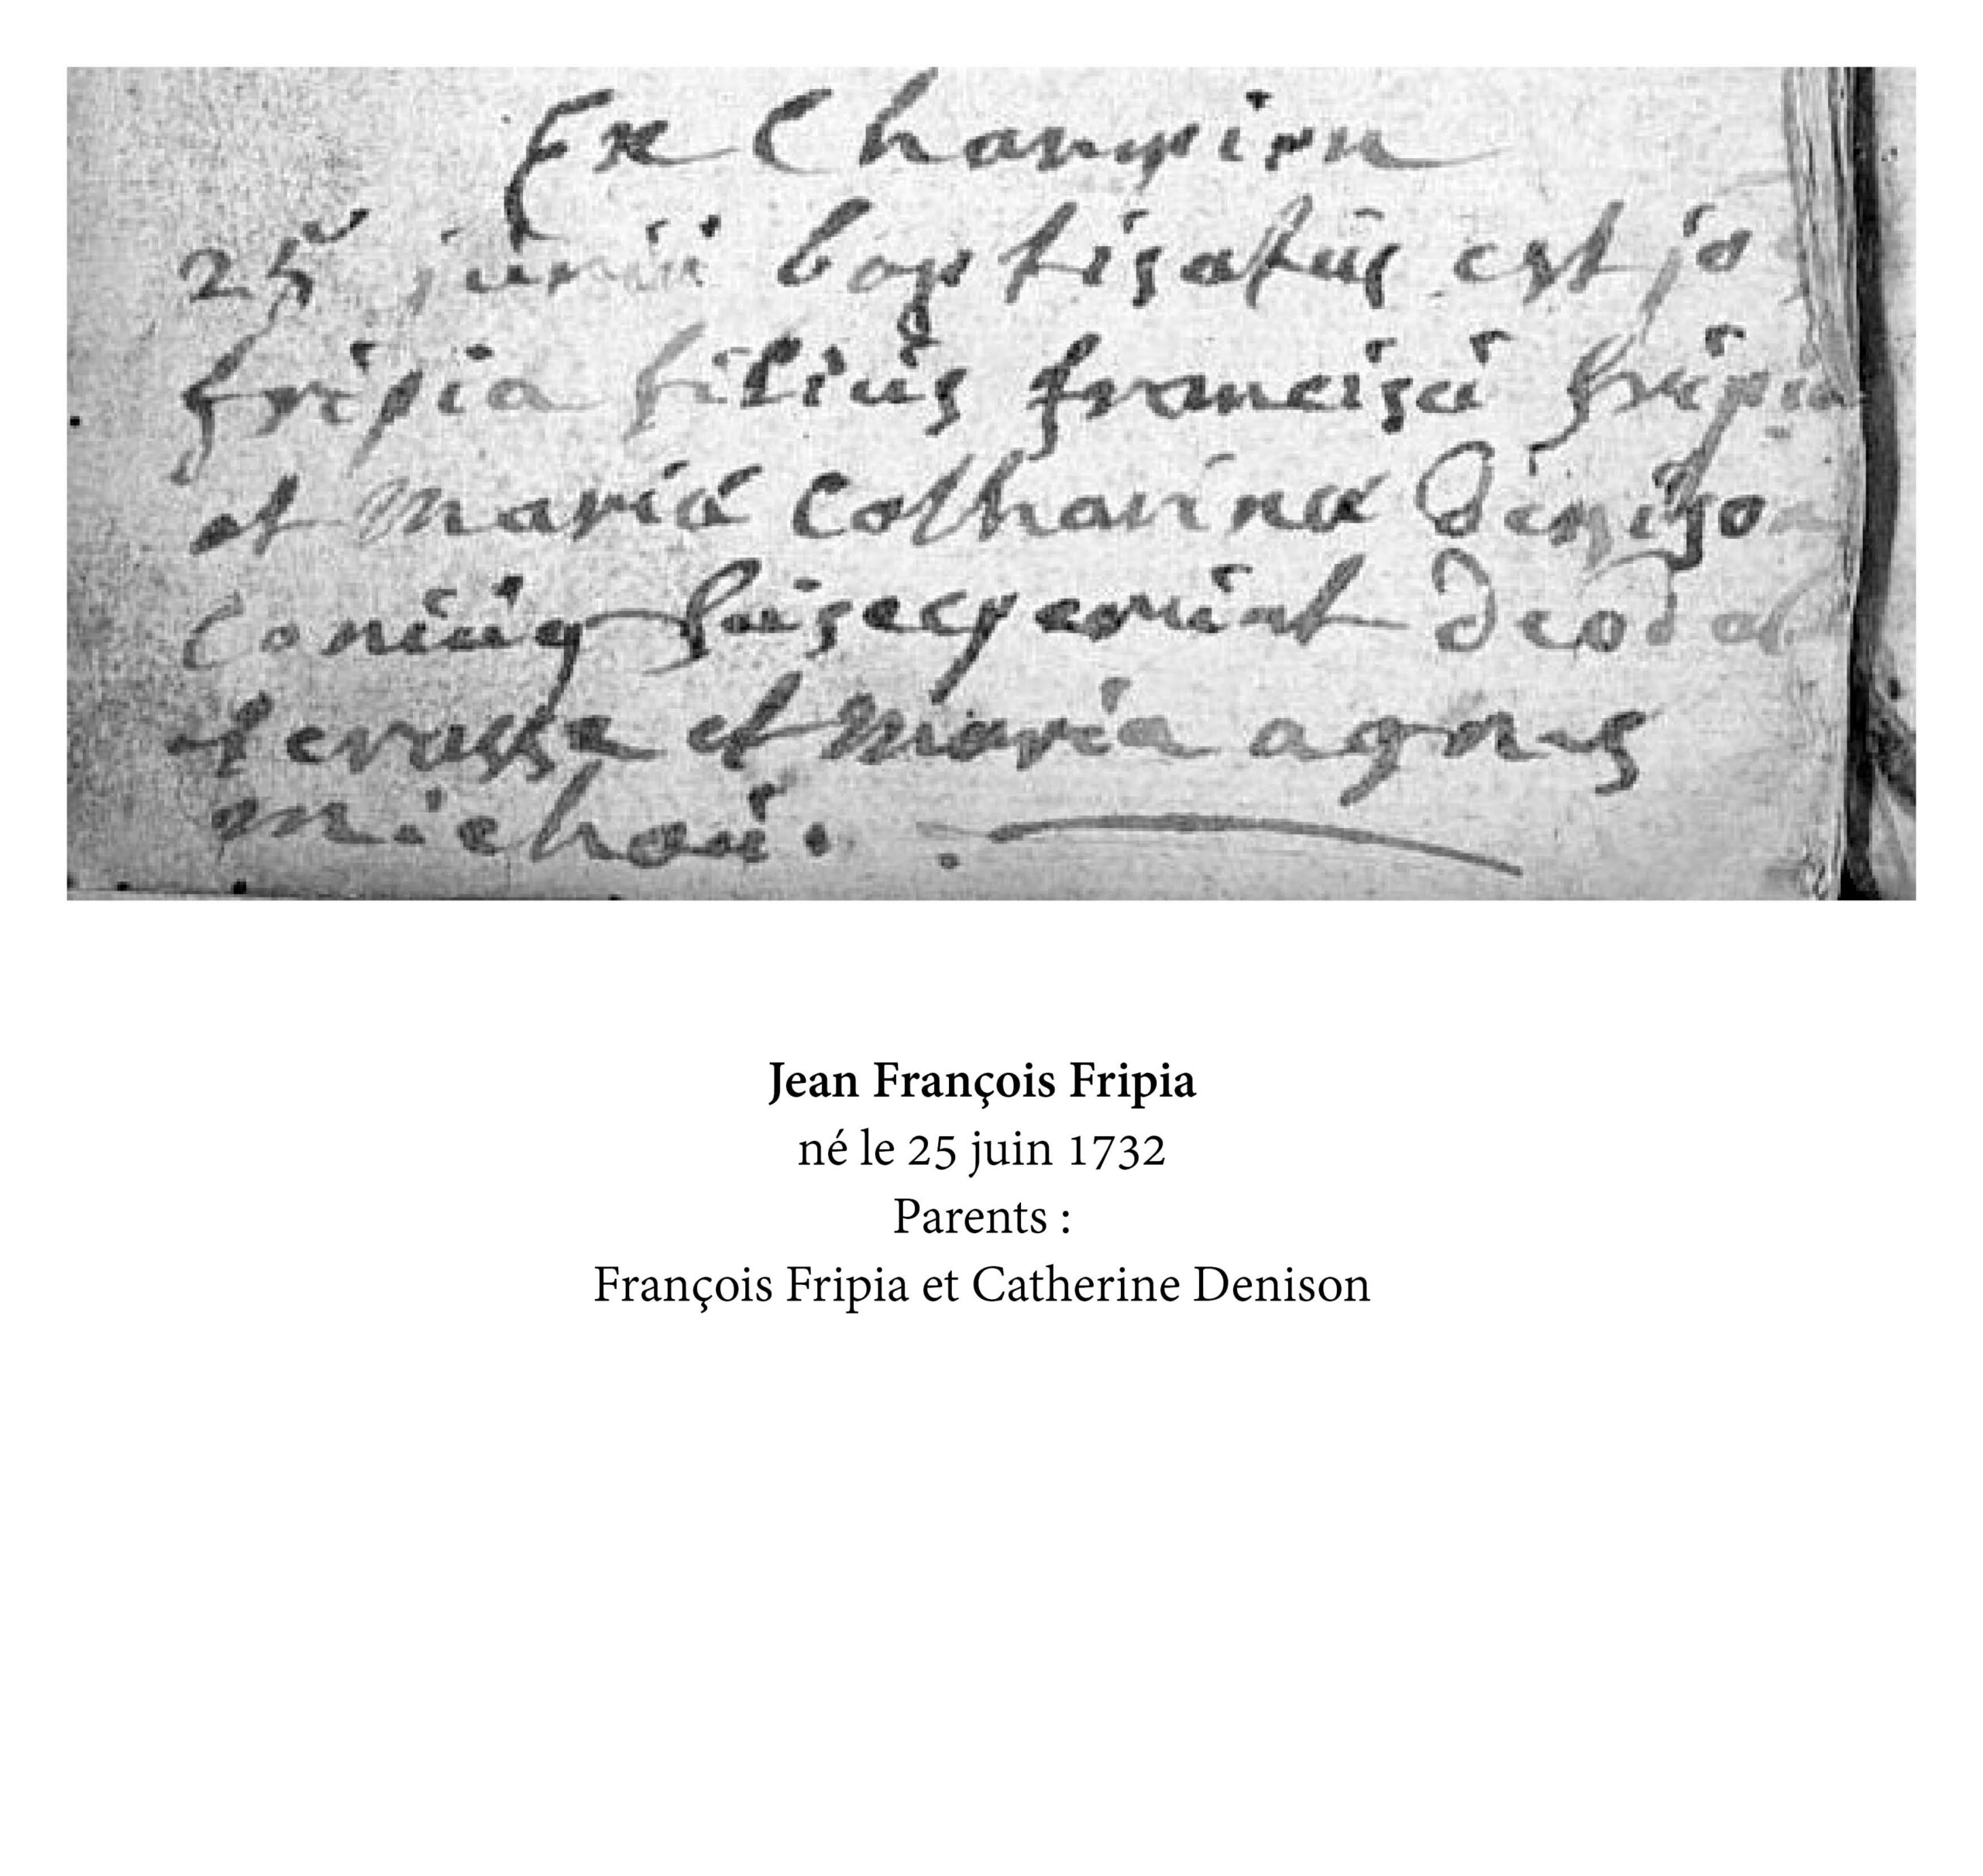 Ex Champion
25 junii baptisatus est jo
fripia filius francisci fripia
et Maria Catharina Deniso
Coniug suseceperunt deodat
et Maria agnes
michaux.
Jean François Fripia
né le 25 juin 1732
Parents :
François Fripia et Catherine Denison